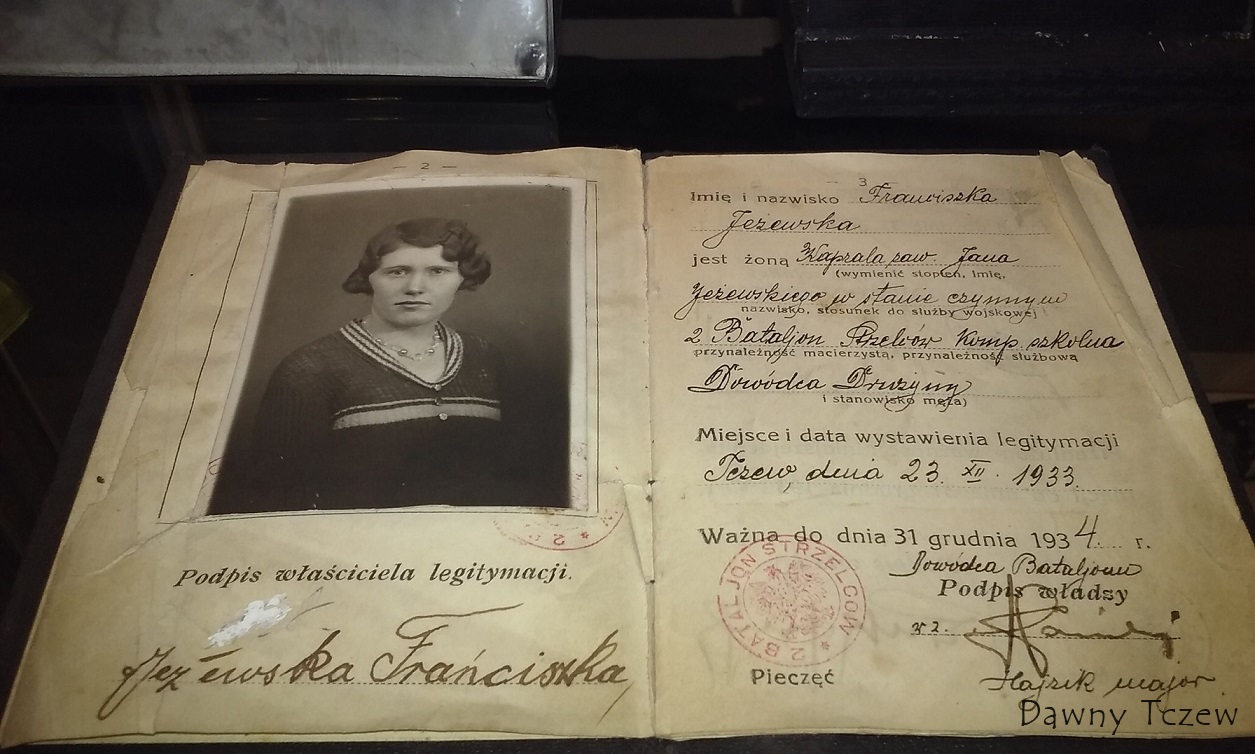 — 2 —
Podpis właściciela legitymacji.
Jeżewska Frańciszka
— 3 —
Imię i nazwisko Franciszka
Jeżewska
jest żoną Kaprala zaw Jana
(wymienić stopień, imię,
Jeżewskiego w stanie czynnym
nazwisko, stosunek do służby wojskowej
2 Bataljon Strzelców Komp. szkolna
przynależność macierzysta, przynależność służbowa
Dowódca Drużyny
i stanowisko męża)
Miejsce i data wystawienia legitymacji
Tczew, dnia 23. XII. 1933.
Ważna do dnia 31 grudnia 1934 r.
Dowódca Bataljonu
Podpis władzy
w z.
2 BATALJON STRZELCÓW *
Pieczęć
major
Dawny Tczew